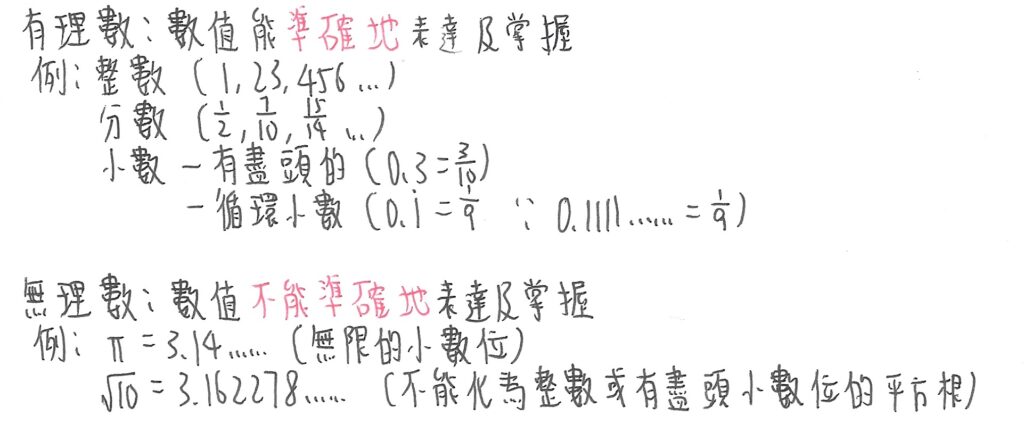 有理數：數值能準確地表達及掌握
例：整數 (1, 23, 456...)
分數 (1/2, 7/10, 15/14 ...)
小數 - 有盡頭的 (0.3 = 3/10)
- 循環小數 (0.i̇ = 1/9 ∵ 0.1111...... = 1/9)
無理數：數值不能準確地表達及掌握
例：π = 3.14...... (無限的小數位)
√10 = 3.162278...... (不能化為整數或有盡頭小數位的平方根)